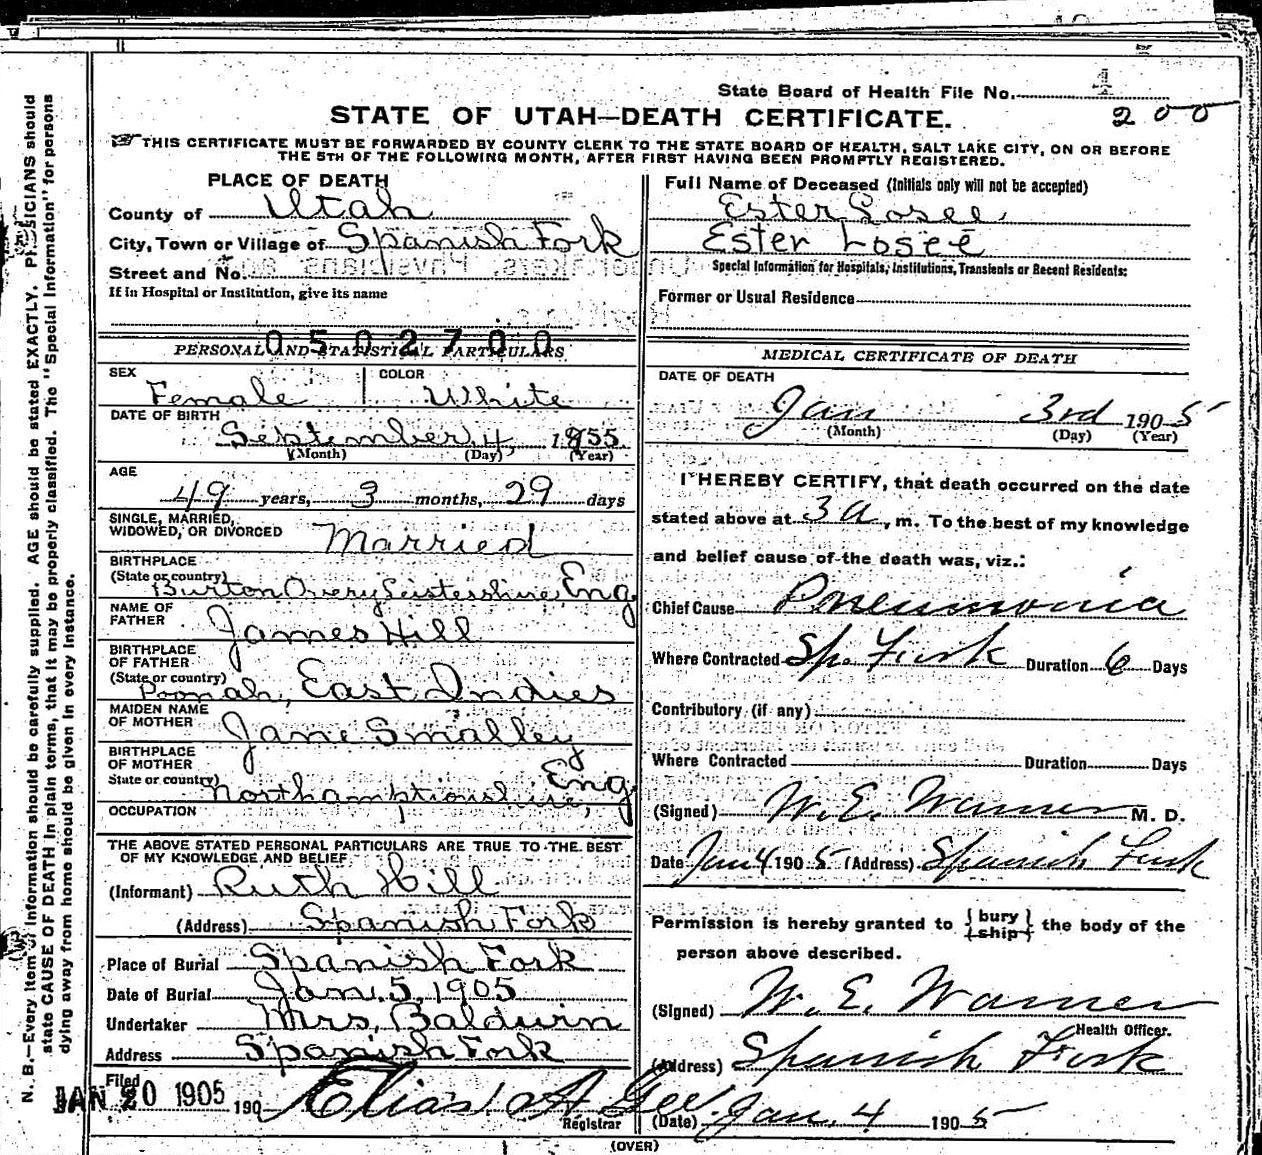 State Board of Health File No. 4
200
STATE OF UTAH—DEATH CERTIFICATE.
THIS CERTIFICATE MUST BE FORWARDED BY COUNTY CLERK TO THE STATE BOARD OF HEALTH, SALT LAKE CITY, ON OR BEFORE
THE 5TH OF THE FOLLOWING MONTH, AFTER FIRST HAVING BEEN PROMPTLY REGISTERED.
PLACE OF DEATH
County of Utah
City, Town or Village of Spanish Fork
Street and No.
If in Hospital or Institution, give its name
0502700
PERSONAL AND STATISTICAL PARTICULARS
SEX Female COLOR White
DATE OF BIRTH
September 4, 1855.
(Month) (Day) (Year)
AGE
49 years, 3 months, 29 days
SINGLE, MARRIED,
WIDOWED, OR DIVORCED Married
BIRTHPLACE
(State or country) Burton Overy Leistesshire, Eng
NAME OF
FATHER James Hill
BIRTHPLACE
OF FATHER
(State or country) Poonah, East Indies
MAIDEN NAME
OF MOTHER Jane Smalley
BIRTHPLACE
OF MOTHER
State or country) Northamptionshire, Eng
OCCUPATION
THE ABOVE STATED PERSONAL PARTICULARS ARE TRUE TO THE BEST
OF MY KNOWLEDGE AND BELIEF
(Informant) Ruth Hill
(Address) Spanish Fork
Place of Burial Spanish Fork
Date of Burial Jan. 5, 1905
Undertaker Mrs. Baldwin
Address Spanish Fork
Filed
JAN 20 1905 190 Elias A. Gee.
Registrar
Full Name of Deceased (Initials only will not be accepted)
Ester Losee
Ester Losee
Special Information for Hospitals, Institutions, Transients or Recent Residents:
Former or Usual Residence
MEDICAL CERTIFICATE OF DEATH
DATE OF DEATH
Jan 3rd 1905
(Month) (Day) (Year)
I HEREBY CERTIFY, that death occurred on the date
stated above at 3 a, m. To the best of my knowledge
and belief cause of the death was, viz.:
Chief Cause Pneumonia
Where Contracted Sp. Fork Duration 6 Days
Contributory (if any)
Where Contracted Duration Days
(Signed) W. E. Warner M. D.
Date Jan 4 1905 (Address) Spanish Fork
Permission is hereby granted to {bury ship} the body of the
person above described.
(Signed) W. E. Warner
Health Officer.
(Address) Spanish Fork
(Date) Jan. 4 1905
(OVER)
N. B.—Every item of information should be carefully supplied. AGE should be stated EXACTLY. PHYSICIANS should
state CAUSE OF DEATH in plain terms, that it may be properly classified. The "Special Information" for persons
dying away from home should be given in every instance.